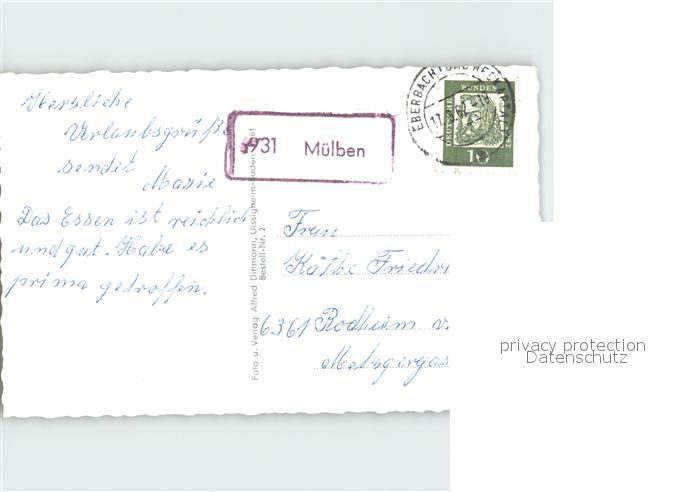 Herzliche
Urlaubsgrüße
sendit
Marie
Das Essen ist reichlich
und gut. Habe es
prima getroffen.
6931 Mülben
Foto u. Verlag Alfred Dittmann, Uissigheim-Baden
Bestell-Nr. 2
EBERBACH
DEUTSCHE BUNDES
10
Frau
Käthe Friedr
6361 Rodheim v.
Metzgergas
privacy protection
Datenschutz